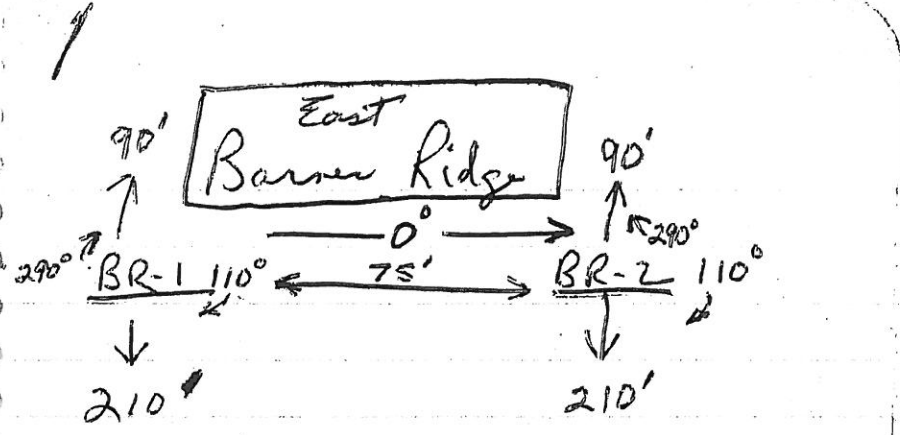 East
90' Barnes Ridge 90'
0°
290° 290°
BR-1 110° 75' BR-2 110°
210' 210'